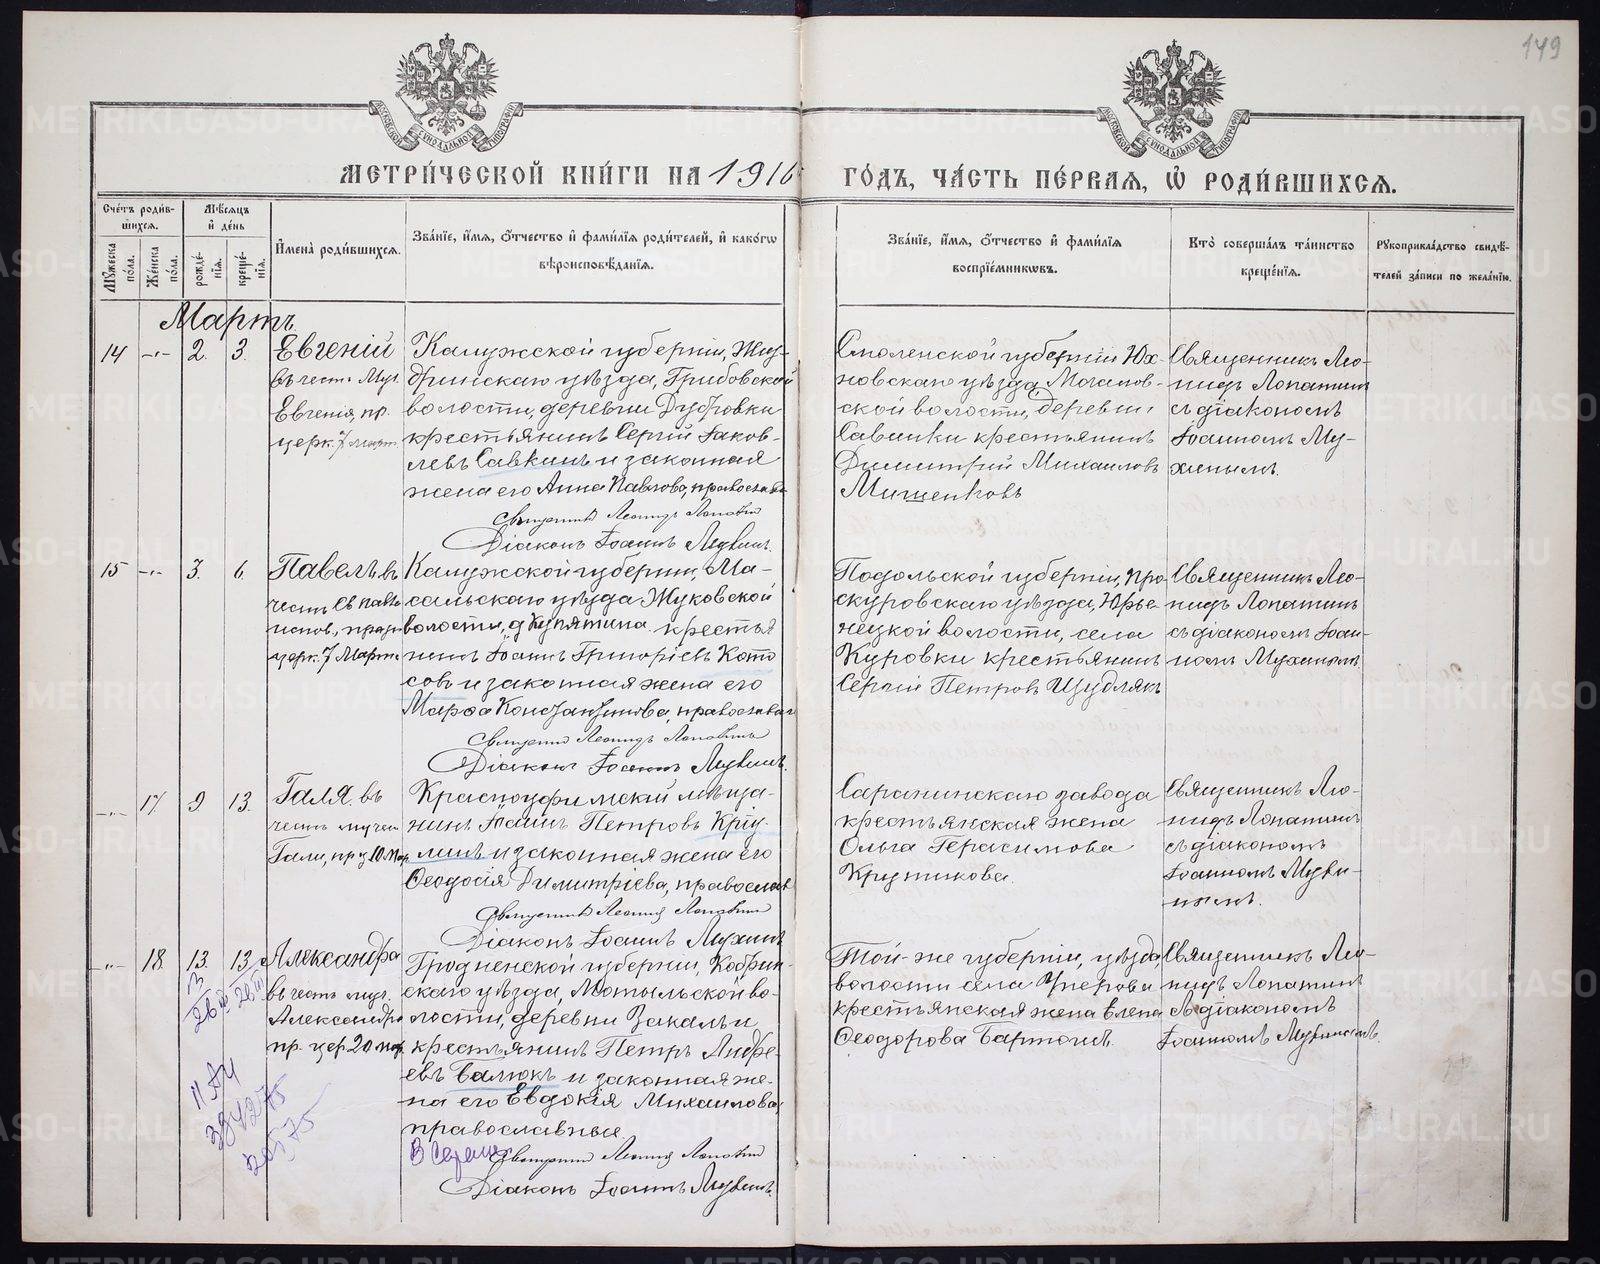 149
МЕТРИ́ЧЕСКОЙ КНИ́ГИ НА 1916 ГО́ДЪ, ЧА́СТЬ ПЕ́РВАЯ, Ѡ РОДИ́ВШИХСЯ.
Сче́тъ роди́вшихся.
Мѣ́сяцъ и де́нь
Му́жеска по́ла.
Же́нска по́ла.
рожде́нїя.
креще́нїя.
Имена̀ роди́вшихся.
Зва́нїе, и́мя, о́тчество и фами́лїя роди́телей, и како́гѡ вѣроисповѣ́данїя.
Зва́нїе, и́мя, о́тчество и фами́лїя воспрїе́мникѡвъ.
Кто̀ соверша́лъ та́инство креще́нїя.
Рꙋкоприкла́дство свидѣ́телей за́писи по жела́нїю.
Мартъ
14 -"- 2. 3.
Евгеній
въ честь Муч.
Евгенія, пр.
церк. 7 март.
Калужской губерніи, Жиз-
дринскаго уѣзда, Грибовской
волости, деревни Дубровки
крестьянинъ Сергій Іаков-
левъ Савкинъ и законная
жена его Анна Павлова, православн
Священникъ Леонидъ Лопатин
Діаконъ Іоаннъ Мухинъ.
Смоленской губерніи Юх-
новскаго уѣзда Мочанов-
ской волости, деревни
Савинки крестьянинъ
Димитрій Михаиловъ
Мишенковъ
Священникъ Лео-
нидъ Лопатинъ
съ діакономъ
Іоанномъ Му-
хинымъ.
15 -"- 3. 6.
Павелъ въ
честь Св Павла
испов., празн
церк. 7 Марта
Калужской губерніи, Ма-
сальскаго уѣзда Жуковской
волости, д Купятина крестья
нинъ Іоаннъ Григоріевъ Кото
совъ и законная жена его
Марѳа Константинова, православн
Священник Леонидъ Лопатинъ
Діаконъ Іоаннъ Мухинъ.
Подольской губерніи, Про
скуровскаго уѣзда, Юрье-
нецкой волости, села
Куровки крестьянинъ
Сергій Петровъ Шудлякъ
Священникъ Лео-
нидъ Лопатинъ
съ діакономъ Іоан-
номъ Мухинымъ
-"- 17 9 13.
Галя. въ
честь мучен
Гали, пр ц 10 Мар
Красноуфимскій мѣща-
нинъ Іоаннъ Петровъ Кріу-
линъ и законная жена его
Ѳеодосія Димитріева, православ
Священникъ Леонид Лопатин
Діаконъ Іоаннъ Мухинъ
Саранинскаго завода
крестьянская жена
Ольга Герасимова
Крутикова.
Священникъ Лео-
нидъ Лопатинъ
съ діакономъ
Іоанномъ Мухи-
нымъ.
-"- 18. 13. 13
Александра
въ честь муч.
Александры
пр. цер 20 мар
Гродненской губерніи, Кобрин-
скаго уѣзда, Мотыльской во-
лости, деревни Закальи
крестьянинъ Петръ Андре-
евъ Валюкъ и законная же-
на его Евдокія Михаилова,
православные.
Священникъ Леонид Лопатин
Діаконъ Іоаннъ Мухинъ.
Той-же губерніи, уѣзда,
волости села
крестьянская жена Елена
Ѳеодорова Бартошъ.
Священникъ Лео-
нидъ Лопатинъ
съ діакономъ
Іоанномъ Мухинымъ.
METRIKI.GASO-URAL.RU